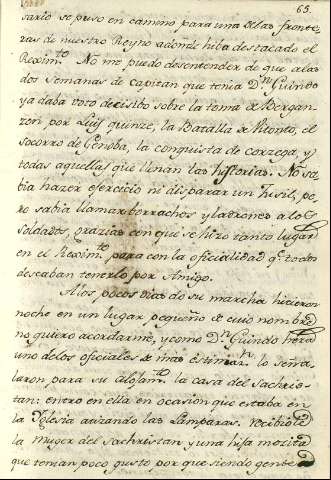 65.
sario se puso en camino para una delas fronte-
ras de nuestro Reyno adonde hiba destacado el
Reximto. No me puedo desentender de que alas
dos semanas de capitan que tenia Dn. Guindo
ya daba voto decisibo sobre la toma de Bergan-
zon por Luis quinze, la Batalla de Vitonto, el
socorro de Genoba, la conquista de corzega, y
todas aquellas que llenan las historias. No sa-
bia hazer exercicio ni disparar un fusil, pe-
ro sabia llamar borrachos y ladrones a los
soldados, grazias con que se hizo tanto lugar
en el Reximto. para con la oficialidad q. todos
deseaban tenerlo por Amigo.
Alos pocos dias de su marcha hicieron
noche en un lugar pequeño de cuio nombre
no quiero acordarme, y como Dn. Guindo hera
uno delos oficiales de mas estimazn. lo seña-
laron para su alojamto. la casa del Sachris-
tan: entro en ella en ocasion que estaba en
la Yglesia atizando las lamparas. Recibiole
la muger del sachristan y una hija mozita
que tenian poco gusto por que siendo gente